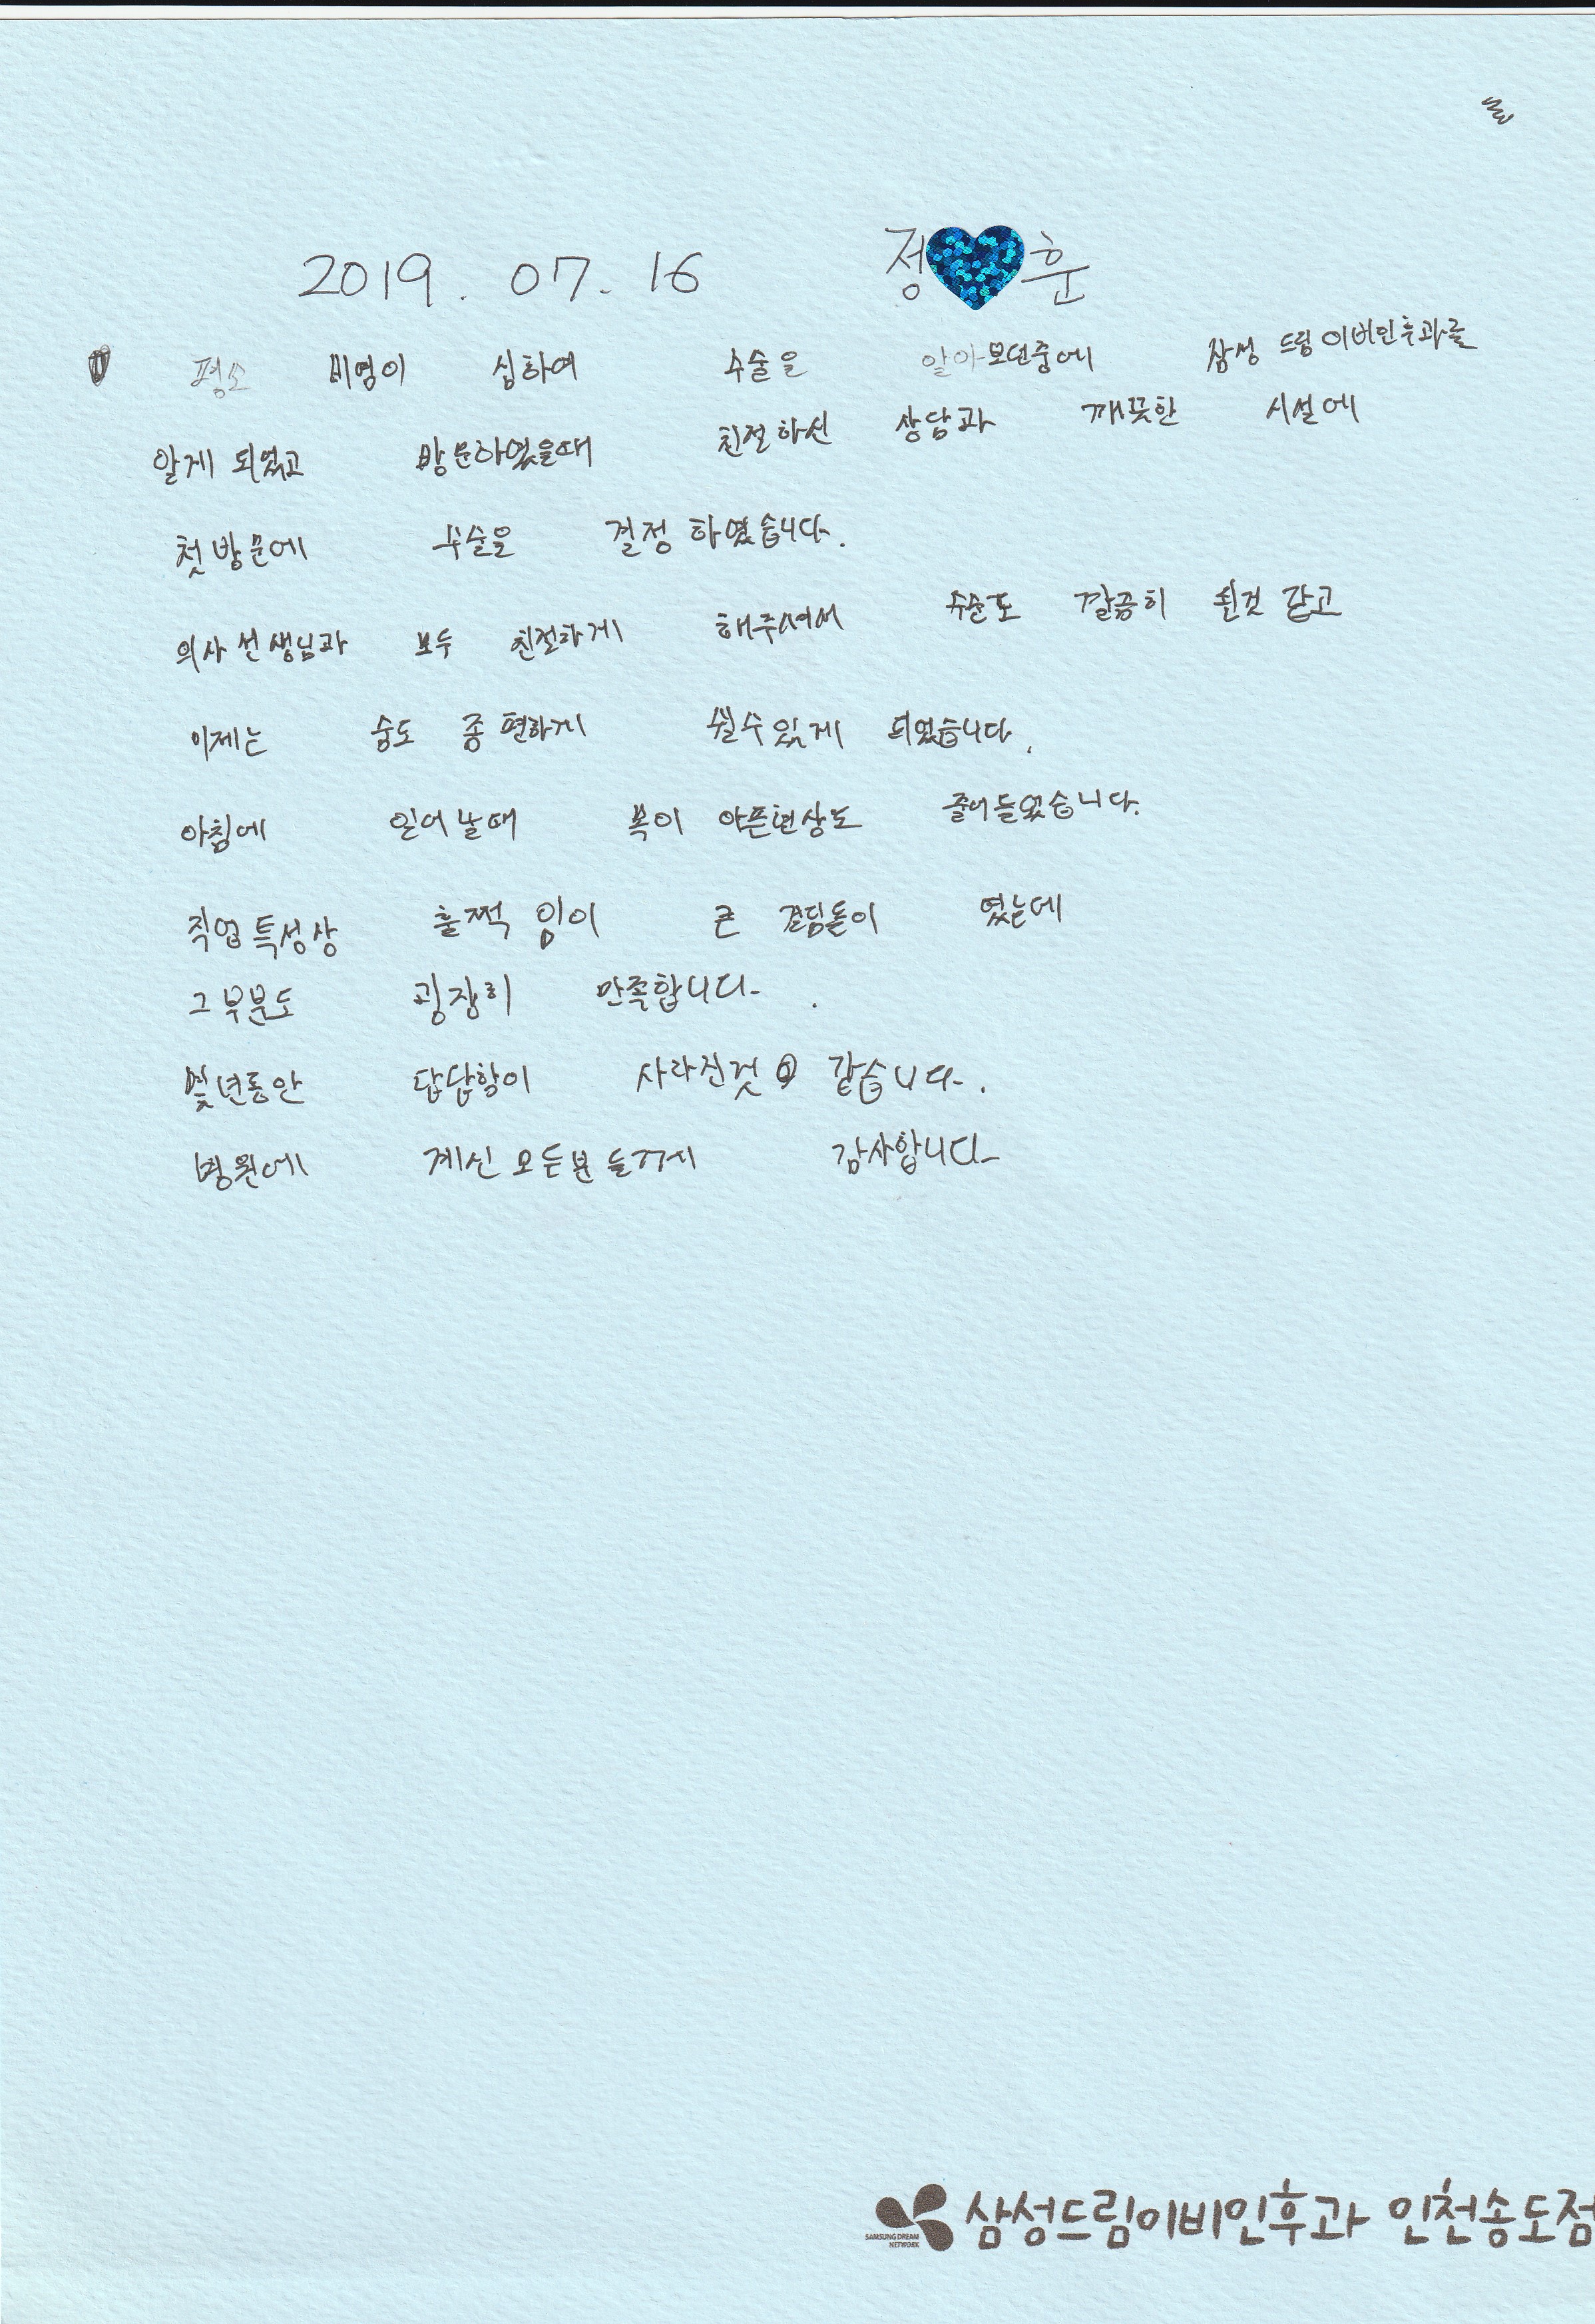 2019. 07. 16 정 훈
평소 비염이 심하여 수술을 알아보던중에 삼성 드림이비인후과를
알게 되었고 방문하였을때 친절하신 상담과 깨끗한 시설에
첫방문에 수술을 결정 하였습니다.
의사선생님과 모두 친절하게 해주셔서 수술도 깔끔히 된것 같고
이제는 숨도 좀 편하게 쉴수있게 되었습니다.
아침에 일어날때 목이 아픈현상도 줄어들었습니다.
직업특성상 훌쩍임이 큰 걸림돌이 였는데
그부분도 굉장히 만족합니다.
몇년동안 답답함이 사라진것 같습니다.
병원에 계신 모든분들께 감사합니다
SAMSUNG DREAM NETWORK 삼성드림이비인후과 인천송도점